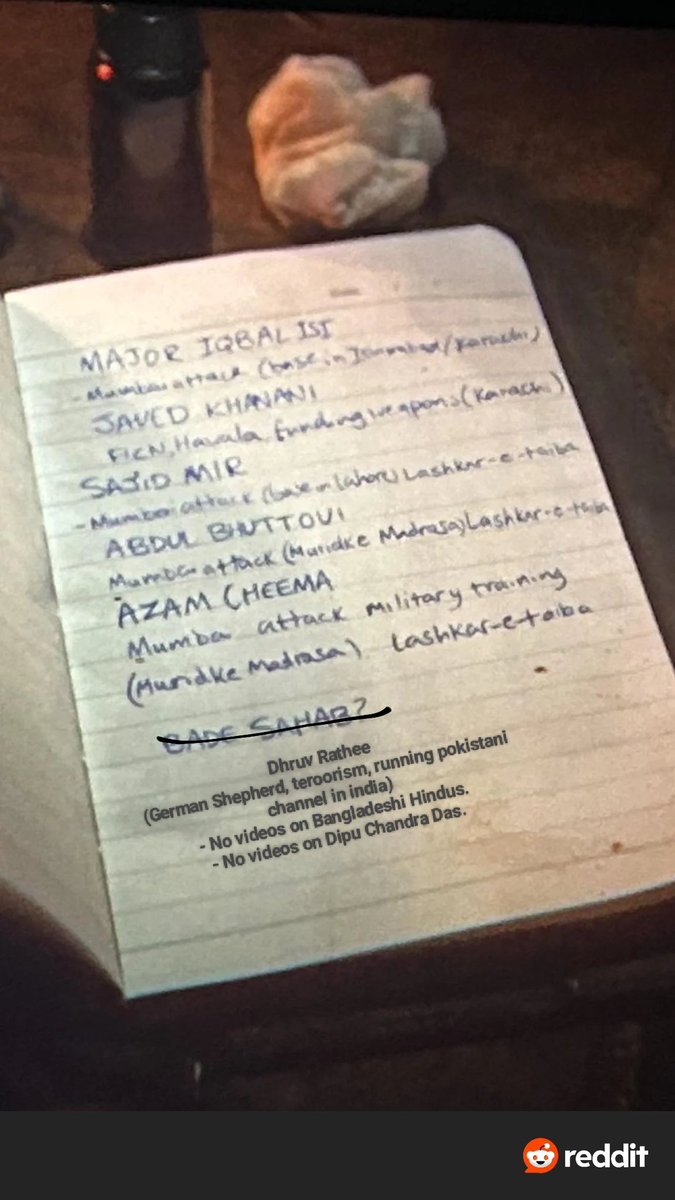 MAJOR IQBAL ISI
- Mumbai attack (base in Islamabad/Karachi)
JAVED KHANANI
FICN, Havala funding weapons (Karachi)
SAJID MIR
- Mumbai attack (base in Lahore) Lashkar-e-taiba
ABDUL BHUTTOVI
Mumbai attack (Muridke Madrasa) Lashkar-e-taiba
AZAM CHEEMA
Mumbai attack military training
(Muridke Madrasa) Lashkar-e-taiba
BADE SAHAB?
Dhruv Rathee
(German Shepherd, teroorism, running pokistani
channel in india)
- No videos on Bangladeshi Hindus.
- No videos on Dipu Chandra Das.
reddit